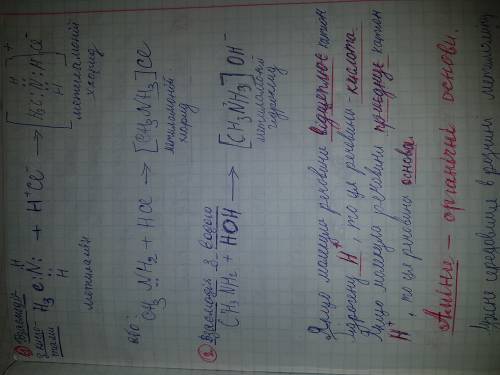 ① Взаємод.
з кисло-
тами
H₃C:N: + H⁺Cl⁻ → [H₃C:N:H]⁺Cl⁻
метиламін
метиламоній
хлорид
або:
CH₃NH₂ + HCl → [CH₃NH₃]Cl
метиламоній
хлорид
② Взаємодія з водою
CH₃NH₂ + HOH → [CH₃NH₃]OH⁻
метиламоній
гідроксид
Якщо молекула речовини відщеплює катион
гідрогену H⁺, то ця речовина - кислота.
Якщо молекула речовини приєднує катион
H⁺, то ця речовина основа.
Аміни - органічні основи.
Лужне середовище в розчині метиламіну